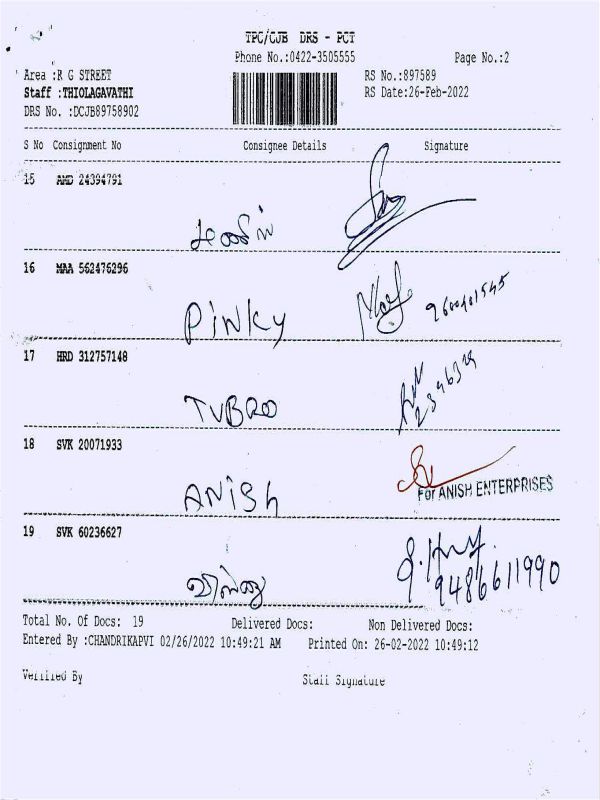 TPC/CJB DRS - PCT
Phone No.:0422-3505555
Page No.:2
Area :R G STREET
RS No.:897589
Staff :THIOLAGAVATHI
RS Date:26-Feb-2022
DRS No. :DCJB89758902
S No Consignment No Consignee Details Signature
15 AMD 24394791
16 MAA 562476296
PINKY 9600401545
17 HRD 312757148
TVBRO
18 SVK 20071933
ANISH
For ANISH ENTERPRISES
19 SVK 60236627
9486611990
Total No. Of Docs: 19 Delivered Docs: Non Delivered Docs:
Entered By :CHANDRIKAPVI 02/26/2022 10:49:21 AM Printed On: 26-02-2022 10:49:12
Verified By Staff Signature